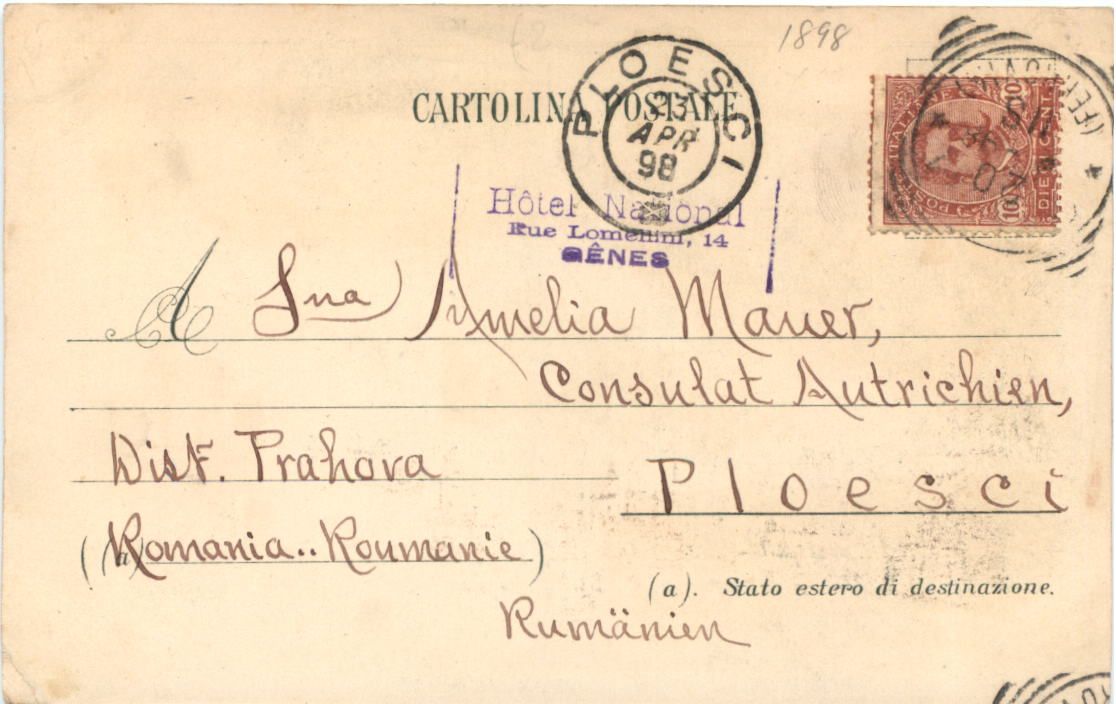 1898
PLOESCI
23
APR
98
CARTOLINA POSTALE
Hôtel National
Rue Lomellini, 14
GÊNES
A Sna Amelia Mauer,
Consulat Autrichien,
Dist. Prahova
Ploesci
(a) Romania.. Roumanie)
(a). Stato estero di destinazione.
Rumänien